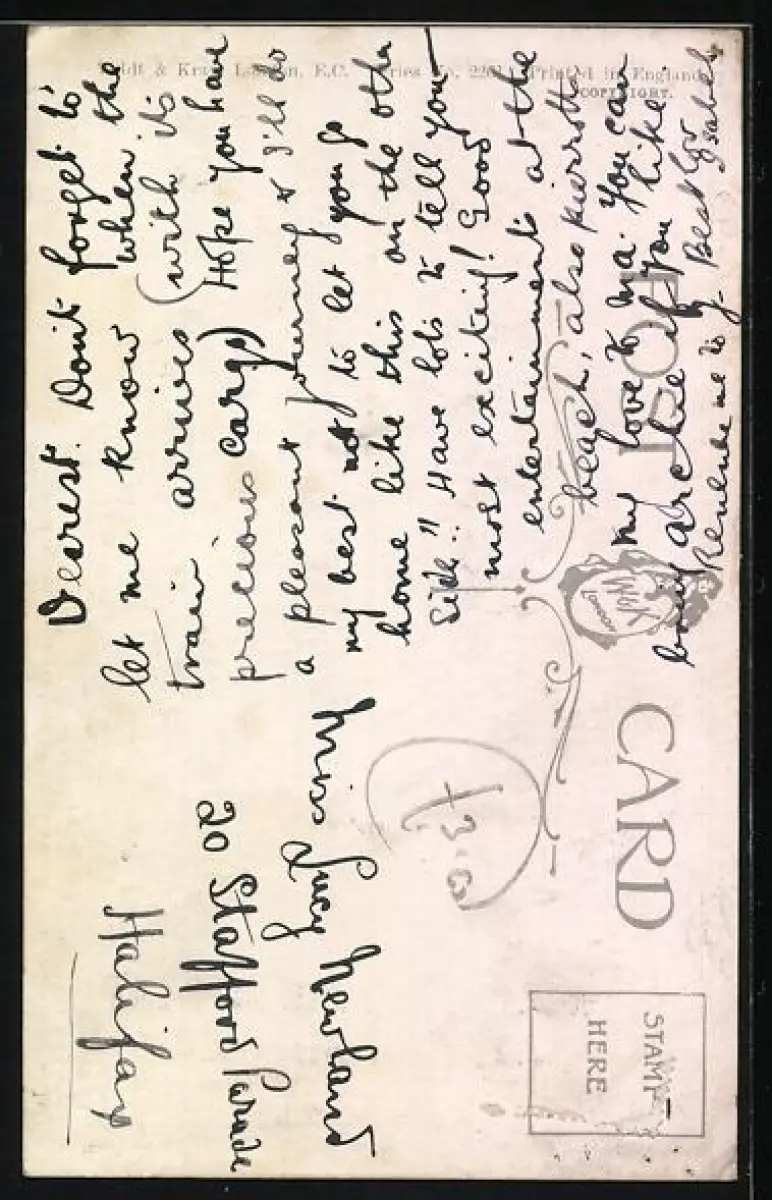 Dearest. Don't forget to
let me know when the
train arrives (with its
precious cargo) Hope you have
a pleasant journey & I'll do
my best not to let you go
home like this on the other
side!! Have lots to tell you
most exciting! Good
entertainments at the
beach, also pierrots
My love to Ma. You can
bring archie if you like.
Remember me to J. Best love
Miss Lucy Newland
20 Stafford Parade
Halifax
£3.00
POST CARD
STAMP
HERE
& London, E.C. Series No. Printed in England
COPYRIGHT.